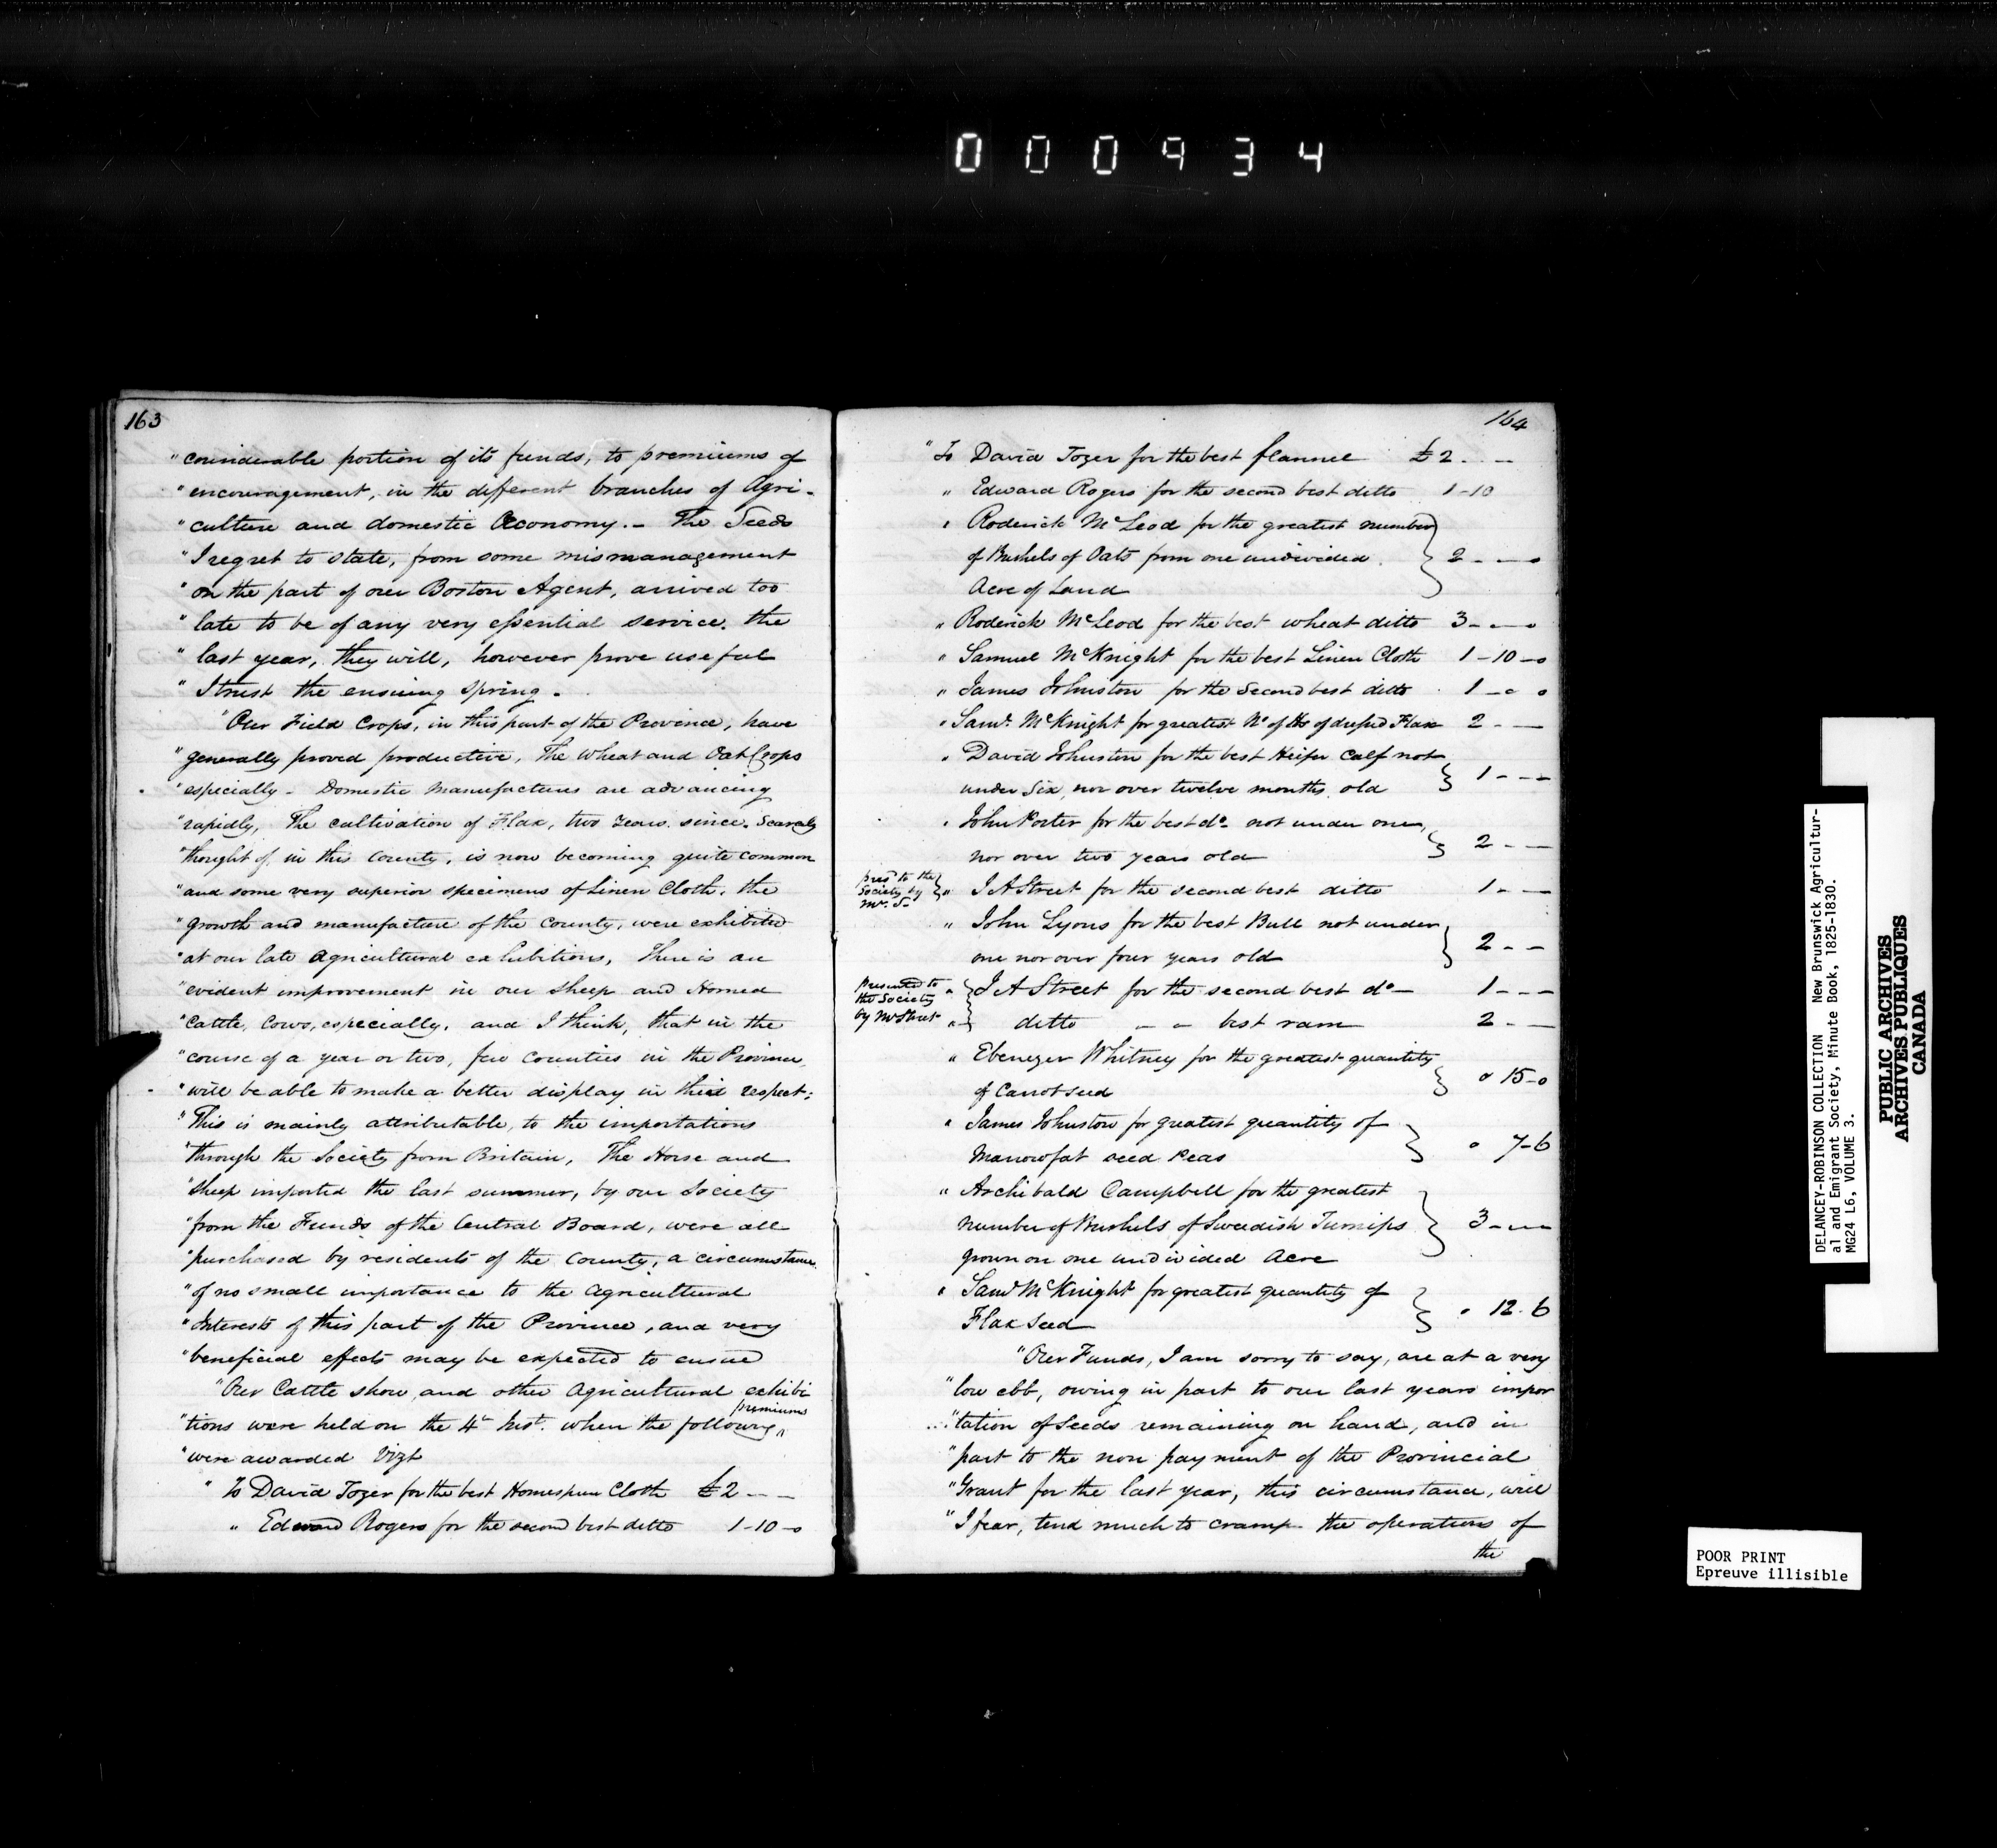 000934
163
"considerable portion of its funds, to premiums of
"encouragement, in the different branches of Agri-
"culture and domestic Œconomy. - The Seeds
"I regret to state, from some mismanagement
"on the part of our Boston Agent, arrived too
"late to be of any very essential service. the
"last year, they will, however prove useful
"I trust the ensuing Spring -
"Our Field Crops, in this part of the Province, have
"generally proved productive, The Wheat and Oat Crops
"especially - Domestic Manufactures are advancing
"rapidly, The cultivation of Flax, two Years since. Scarcely
"thought of, in this County, is now becoming quite common
"and some very superior specimens of Linen Cloth. the
"growth and manufacture of the County, were exhibited
"at our late Agricultural exhibitions, There is an
"evident improvement in our Sheep and Horned
"Cattle, Cows, especially, and I think, that in the
"course of a year or two, few Counties in the Province,
"will be able to make a better display in this respect;
"This is mainly attributable, to the importations
"through the Society from Britain, The Horse and
"Sheep imported the last summer, by our Society
"from the Funds of the Central Board, were all
"purchased by residents of the County, a circumstance
"of no small importance to the Agricultural
"Interests of this part of the Province, and very
"beneficial effects may be expected to ensue
"Our Cattle show, and other Agricultural exhibi
premiums
"tions were held on the 4th Inst. when the following "
"were awarded Vizt
"To David Tozer for the best Homespun Cloth £2 - -
" Edward Rogers for the second best ditto 1-10-0
164
"To David Tozer for the best flannel £2 - -
" Edward Rogers for the second best ditto 1-10
" Roderick McLeod for the greatest number
of Bushels of Oats from one undivided 2 - - 0
Acre of Land
" Roderick McLeod for the best wheat ditto 3 - - 0
" Samuel McKnight for the best Linen Cloth 1-10-0
" James Johnston for the Second best ditto 1-0 0
" Saml. McKnight for greatest No of lbs of dressed Flax 2 - -
" David Johnston for the best Heifer Calf not
under Six, nor over twelve months old 1 - - -
" John Porter for the best do- not under one,
nor over two years old 2 - -
presd to the
Society by
Mr. S- " J A Street for the second best ditto 1 - -
" John Lyons for the best Bull not under
one nor over four years old 2 - -
Presented to
the Society
by Mr Street " J A Street for the second best do- 1 - - -
" ditto - - best ram 2 - -
" Ebenezer Whitney for the greatest quantity
of Carrot seed 0 15-0
" James Johnston for greatest quantity of
Marrowfat seed Peas 0 7-6
" Archibald Campbell for the greatest
number of Bushels of Swedish Turnips 3 - - -
grown on one undivided Acre
" Saml McKnight for greatest quantity of
Flax Seed 0 12-6
"Our Funds, I am sorry to say, are at a very
"low ebb, owing in part to our last years impor
"tation of Seeds remaining on hand, and in
"part to the non payment of the Provincial
"Grant for the last year, this circumstance, will
"I fear, tend much to cramp the operations of
the
DELANCEY-ROBINSON COLLECTION New Brunswick Agricultur-
al and Emigrant Society, Minute Book, 1825-1830.
MG24 L6, VOLUME 3.
PUBLIC ARCHIVES
ARCHIVES PUBLIQUES
CANADA
POOR PRINT
Epreuve illisible